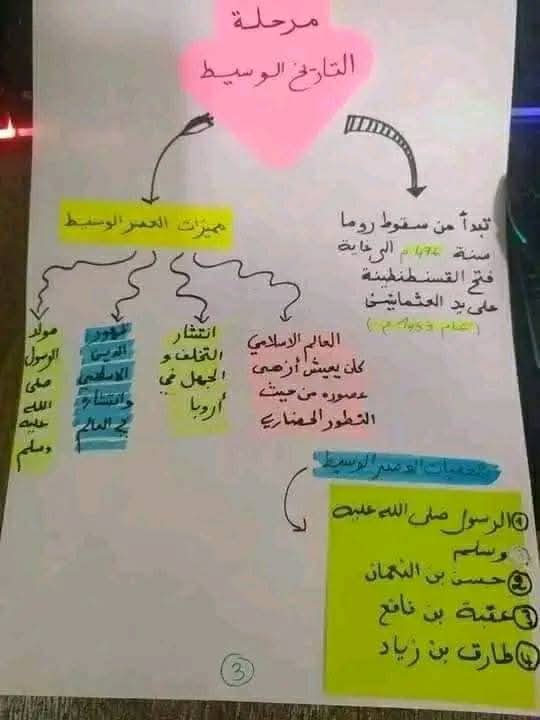 مرحلة
التاريخ الوسيط
تبدأ من سقوط روما
سنة 476م الى غاية
فتح القسنطنطينة
على يد العثمانيين
(عام 1453م)
مميزات العصر الوسيط
العالم الاسلامي
كان يعيش أزهى
عصوره من حيث
التطور الحضاري
انتشار
التخلف و
الجهل في
أوروبا
ظهور
الدين
الاسلامي
وانتشاره
في العالم
مولد
الرسول
صلى
الله
عليه
وسلم
شخصيات العصر الوسيط
1 الرسول صلى الله عليه
وسلم
2 حسن بن النعمان
3 عقبة بن نافع
4 طارق بن زياد
3